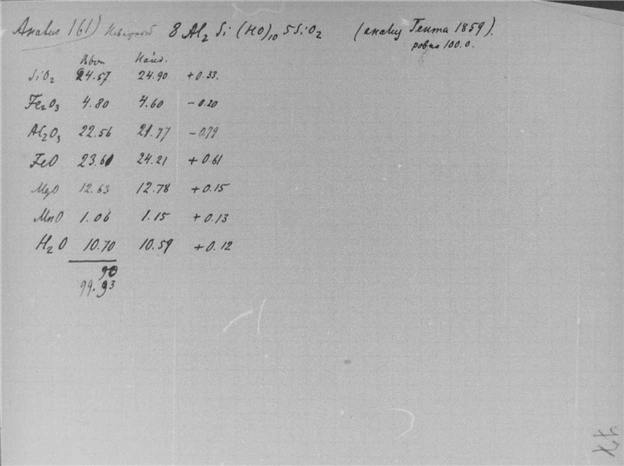 Анализ 161) 8 Al₂ Si (HO)₁₀ 5SiO₂ (анализ Гента 1859).
ровно 100.0.
Выч. Найд.
SiO₂ 24.57 24.90 +0.33
Fe₂O₃ 4.80 4.60 -0.20
Al₂O₃ 22.56 21.77 -0.79
FeO 23.60 24.21 +0.61
MgO 12.63 12.78 +0.15
MnO 1.06 1.15 +0.13
H₂O 10.70 10.59 +0.12
90
99.93